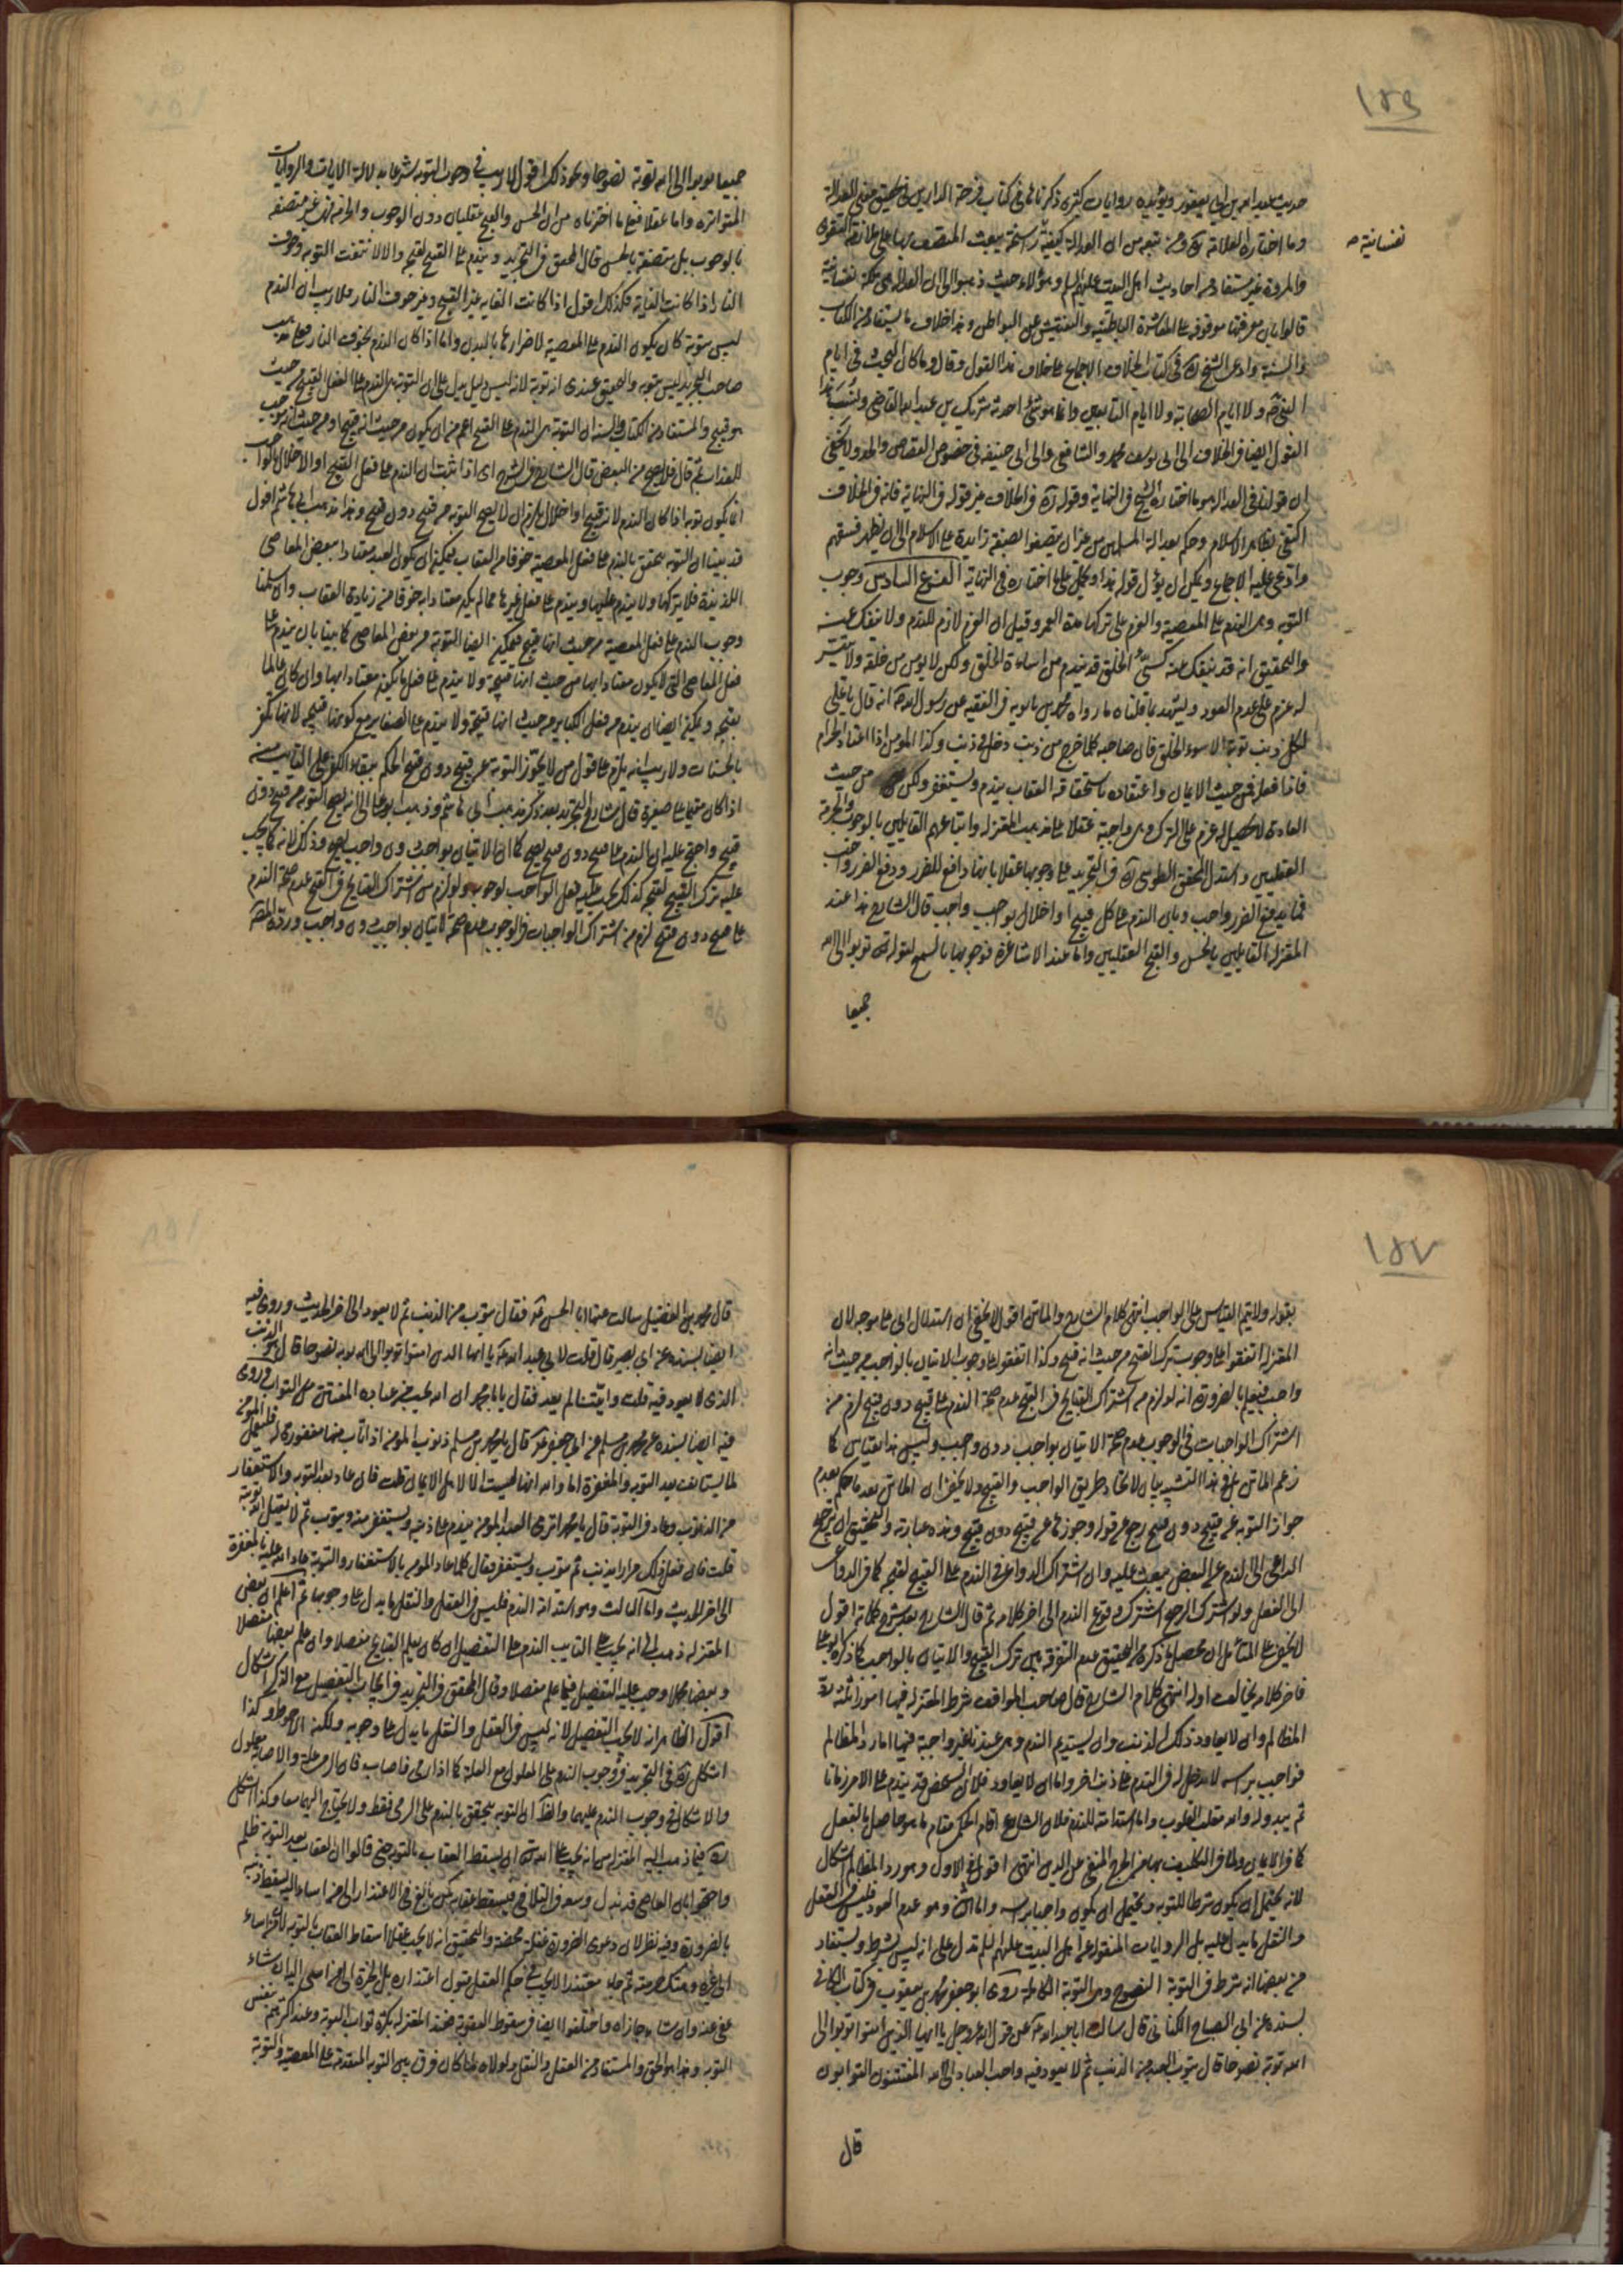 ١٥٦
حديث عبد الله بن ابى يعفور ويؤيده روايات كثيرة ذكرناها فى كتاب فرحة الدارين فى تحقيق معنى العدالة
وما اختاره العلامة ره ومن تبعه من ان العدالة كيفية راسخة تبعث المتصف بها على ملازمة التقوى
نفسانية صح
والمروة غير مستفاد من احاديث اهل البيت عليهم السلم وهؤلاء حيث ذهبوا الى ان العدالة هى ملكة نفسانية
قالوا بان معرفتها موقوفة على المعاشرة الباطنية والتفتيش عن البواطن وهذا خلاف ما يستفاد من الكتاب
والسنة وادعى الشيخ ره فى كتاب الخلاف الاجماع على خلاف هذا القول وقال وما كان البحث فى ايام
النبى ص ولا ايام الصحابة ولا ايام التابعين وانما هو شئ احدثه شريك بن عبد الله القاضى ونسب هذا
القول ايضا فى الخلاف الى ابى يوسف ومحمد والشافعى والى ابى حنيفة فى خصوص القصاص والحدود ولا يخفى
ان قولنا فى العدالة هو ما اختاره الشيخ فى النهاية وقوله ره فى الخلاف غير قوله فى النهاية فانه فى الخلاف
اكتفى بظاهر الاسلام وحكم بعدالة المسلمين من غير ان يتصفوا بصفة زايدة على الاسلام الى ان يظهر فسقهم
وادعى عليه الاجماع ويمكن ان يؤل قوله هذا ويحمل على ما اختاره فى النهاية الفرع السادس وجوب
التوبة وهى الندم على المعصية والعزم على تركها مدة العمر وقيل ان العزم لازم للندم ولا ينفك عنه
والتحقيق انه قد ينفك عنه كسئ الخلق قد يندم من اساءة الخلق ولكن لا يويس من خلقه ولا يتيسر
له عزم على عدم العود ويشهد بما قلناه ما رواه محمد بن بابويه فى الفقيه عن رسول الله ص انه قال يا على
لكل ذنب توبة الا سوء الخلق فان صاحبه كلما خرج من ذنب دخل فى ذنب وكذا المومن اذا اعتاد بالحرام
فاذا فعله فمن حيث الايمان واعتقاده باستحقاقه العقاب يندم ويستغفر ولكن من حيث
العادة لا يحصل له عزم على الترك وهى واجبة عقلا على مذهب المعتزلة واتباعهم القايلين بالوجوب والحرمة
العقليين واستدل المحقق الطوسى ره فى التجريد على وجوبها عقلا بانها دافع للضرر ودفع الضرر واجب
فما يدفع الضرر واجب وبان الندم على كل قبيح او اخلال بواجب واجب قال الشارح هذا عند
المعتزلة القايلين بالحسن والقبح العقليين واما عند الاشاعرة فوجوبها بالسمع لقوله تع توبوا الى الله
جميعا
جميعا توبوا الى الله توبة نصوحا ونحو ذلك اقول لا ريب فى وجوب التوبة شرعا بدلالة الايات والروايات
المتواترة واما عقلا فعلى ما اخترناه من ان الحسن والقبح عقليان دون الوجوب والحرمة فهى غير متصفة
بالوجوب بل متصفة بالحسن قال المحقق فى التجريد ويندم على القبيح لقبحه والا لانتفت التوبة وخوف
النار اذا كانت الغاية فكذلك اقول اذا كانت الغاية غير القبح وغير خوف النار فلا ريب ان الندم
ليس بتوبة كان يكون الندم على المعصية لاضرارها بالبدن واما اذا كان الندم بخوف النار فعلى مذهب
صاحب التجريد ليس بتوبة والتحقيق عندى انه توبة لانه ليس دليل يدل على ان التوبة هى الندم على الفعل القبيح من حيث
هو قبيح والمستفاد من الكتاب والسنة ان التوبة هى الندم على القبيح اعم من ان يكون من حيث انه قبيح او من حيث انه موجب
للعذاب ثم قال فلا يصح من البعض قال الشارح فى الشرح اى اذا ثبت ان الندم على فعل القبيح او الاخلال بالواجب
انما يكون توبة اذا كان الندم لانه قبيح او اخلال يلزم ان لا يصح التوبة من قبيح دون قبيح وهذا مذهب ابى هاشم اقول
قد بينا ان التوبة تتحقق بالندم على فعل المعصية خوفا من العقاب فيمكن ان يكون العبد معتادا ببعض المعاصى
اللذيذة فلا يتركها ولا يندم عليها ويندم على فعل غيرها مما لم يكن معتادا به خوفا من زيادة العقاب وان سلمنا
وجوب الندم على فعل المعصية من حيث انها قبيح فيمكن ايضا التوبة من بعض المعاصى كما بينا بان يندم على
فعل المعاصى التى لا يكون معتادا بها من حيث انها قبيحة ولا يندم على فعل ما يكون معتادا بها وان كان عالما
بقبحه ويمكن ايضا ان يندم من فعل الكباير من حيث انها قبيحة ولا يندم على الصغاير مع كونها قبيحة لانها تكفر
بالحسنات ولا ريب انه يلزم على قول من لا يجوز التوبة عن قبيح دون قبيح الحكم ببقاء الكفر على التايب منه
اذا كان مقيما على صغيرة قال شارح التجريد بعد ذكر مذهب ابى هاشم وذهب ابو على الى انه يصح التوبة من قبيح دون
قبيح واحتج عليه ان الندم على قبيح دون قبيح يصح كما ان الاتيان بواجب دون واجب يصح وذلك لانه كما يجب
عليه ترك القبيح لقبحه كذلك يجب عليه فعل الواجب لوجوبه ولو لزم من اشتراك القبايح فى القبح عدم صحة الندم
على قبيح دون قبيح لزم من اشتراك الواجبات فى الوجوب عدم صحة الاتيان بواجب دون واجب ورده المص
١٥٧
بقوله ولا يتم القياس على الواجب انتهى كلام الشارح والماتن اقول لا يخفى ان استدلال ابى على موجه لان
المعتزلة اتفقوا على وجوب ترك القبيح من حيث انه قبيح وكذا اتفقوا على وجوب الاتيان بالواجب من حيث انه
واجب فيعلم بالضرورة انه لو لزم من اشتراك القبايح فى القبح عدم صحة الندم على قبيح دون قبيح لزم من
اشتراك الواجبات فى الوجوب عدم صحة الاتيان بواجب دون واجب وليس هذا بقياس كما
زعم الماتن بل فى هذا التشبيه بيان لاتحاد طريق الواجب والقبيح ولا يخفى ان الماتن بعد ما حكم بعدم
جواز التوبة عن قبيح دون قبيح رجع عن قوله وجوزها عن قبيح دون قبيح وهذه عبارته والتحقيق ان ترجيح
الداعى الى الندم عن البعض يبعث عليه وان اشترك الدواعى فى الندم على القبيح لقبحه كما فى الدواعى
الى الفعل ولو اشترك الترجيح اشترك وقوع الندم الى اخر كلامه ثم قال الشارح بعد شرح كلامه اقول
لا يخفى على المتأمل ان محصل ما ذكره من التحقيق عدم التفرقة بين ترك القبيح والاتيان بالواجب كما ذكره ابو على
فاخر كلامه يخالف اوله انتهى كلام الشارح قال صاحب المواقف شرط المعتزلة فيها امورا ثلثة رد
المظالم وان لا يعاود ذلك الذنب وان يستديم الندم وهى عندنا غير واجبة فيها اما رد المظالم
فواجب براسه لا مدخل له فى الندم على ذنب اخر واما ان لا يعاود فلان الشخص قد يندم على الامر زمانا
ثم يبدو له والله مقلب القلوب واما استدامته للندم فلان الشارع اقام الحكمى مقام ما هو حاصل بالفعل
كما فى الايمان ولما فى التكليف بها من الحرج المنفى عن الدين انتهى اقول فى الاول وهو رد المظالم اشكال
لانه يحتمل ان يكون شرطا للتوبة ويحتمل ان يكون واجبا براسه واما الثانى وهو عدم العود فليس فى العقل
والنقل ما يدل عليه بل الروايات المنقولة عن اهل البيت عليهم السلم تدل على انه ليس بشرط ويستفاد
من بعضها انه شرط فى التوبة النصوح وهى التوبة الكاملة روى ابو جعفر محمد بن يعقوب فى كتاب الكافى
بسنده عن ابى الصباح الكنانى قال سالت ابا عبد الله ع عن قول الله عز وجل يا ايها الذين امنوا توبوا الى
الله توبة نصوحا قال يتوب العبد من الذنب ثم لا يعود فيه واحب العباد الى الله المفتتنون التوابون
قال
قال محمد بن الفضيل سالت عنها ابا الحسن ع فقال يتوب من الذنب ثم لا يعود الى اخر الحديث وروى فيه
ايضا بسنده عن ابى بصير قال قلت لابى عبد الله ع يا ايها الذين امنوا توبوا الى الله توبة نصوحا قال هو الذنب
الذى لا يعود فيه قلت واينا لم يعد فقال يا با محمد ان الله يحب من عباده المفتتن التواب وروى
فيه ايضا بسنده عن محمد بن مسلم عن ابى جعفر ع قال يا محمد بن مسلم ذنوب المومن اذا تاب منها مغفورة له فليعمل المومن
لما يستانف بعد التوبة والمغفرة اما والله انها ليست الا لاهل الايمان قلت فان عاد بعد التوبة والاستغفار
من الذنوب وعاد فى التوبة قال يا محمد اترى العبد المومن يندم على ذنبه ويستغفر منه ويتوب ثم لا يقبل الله توبته
قلت فان فعل ذلك مرارا يذنب ثم يتوب ويستغفر فقال كلما عاد المومن بالاستغفار والتوبة عاد الله عليه بالمغفرة
الى اخر الحديث واما الثالث وهو استدامة الندم فليس فى العقل والنقل ما يدل على وجوبها ثم اعلم ان بعض
المعتزلة ذهب الى انه يجب على التايب الندم على التفصيل ان كان يعلم القبايح مفصلا وان علم بعضها مفصلا
وبعضها مجملا وجب عليه التفصيل فيما علم مفصلا وقال المحقق فى التجريد وفى ايجاب التفصيل مع الذكر اشكال
اقول الظاهر انه لا يجب التفصيل لانه ليس فى العقل والنقل ما يدل على وجوبه ولكنه الاحوط وكذا
استشكل ره فى التجريد فى وجوب الندم على المعلول مع العلة كما اذا رمى فاصاب فان الرمى علة والاصابة معلول
والاشكال فى وجوب الندم عليهما والظ ان التوبة تتحقق بالندم على الرمى فقط ولا يحتاج اليهما معا وكذا استشكل
ره فيما ذهب اليه المعتزلة من انه يجب على الله تع ان يسقط العقاب بالتوبة حتى قالوا ان العقاب بعد التوبة ظلم
واحتجوا بان العاصى قد بذل وسعه فى التلافى فيسقط عقابه كمن بالغ فى الاعتذار الى من اساء اليه يسقط ذنبه
بالضرورة وفيه نظر لان دعوى الضرورة محضة والتحقيق انه لا يجب عقلا اسقاط العقاب بالتوبة لان من اساء
الى غيره وهتك حرمته ثم جاء معتذرا لا يجب فى حكم العقل قبول اعتذاره بل الخيرة الى من اسئ اليه ان شاء
عفى عنه وان شاء جازاه واختلفوا ايضا فى سقوط العقوبة فعند المعتزلة بكثرة ثواب التوبة وعند اكثرهم بنفس
التوبة وهذا هو الحق والمستفاد من العقل والنقل ولولاه لما كان فرق بين التوبة المتقدمة على المعصية والتوبة